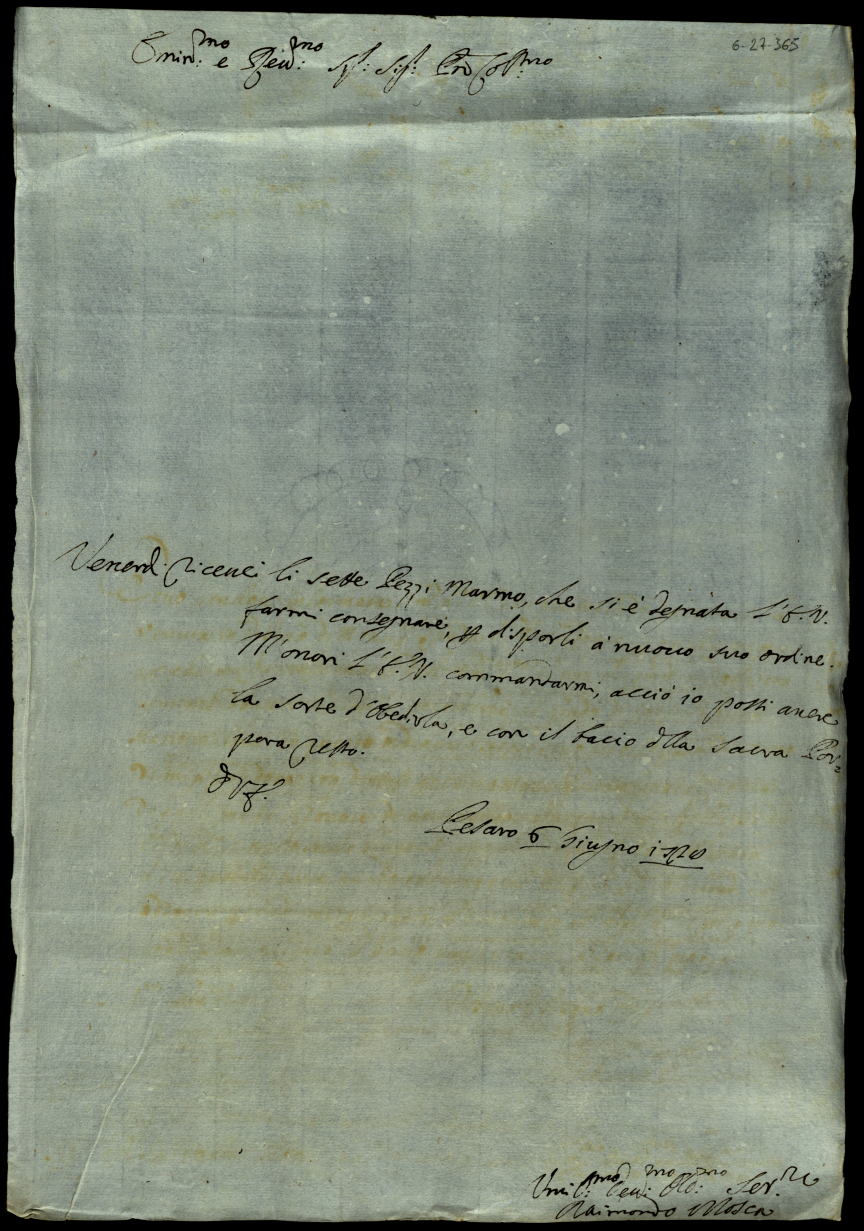 6-27-365
Emin.mo e Rev.mo Sig.r Sig.r Pron Col.mo
Venerd. riceuei li sette Pezzi Marmo, che si è degnata l'E.V.
farmi consegnare, p disporli à nuouo suo ordine.
M'onori l'E.V. commandarmi, acciò io possi auere
la sorte d'obedirla, e con il bacio dlla sacra Por=
pora resto.
D V E.
Pesaro 6 Giugno
Umil.mo Deu.mo Obl.mo Ser.re
Raimondo Mosca